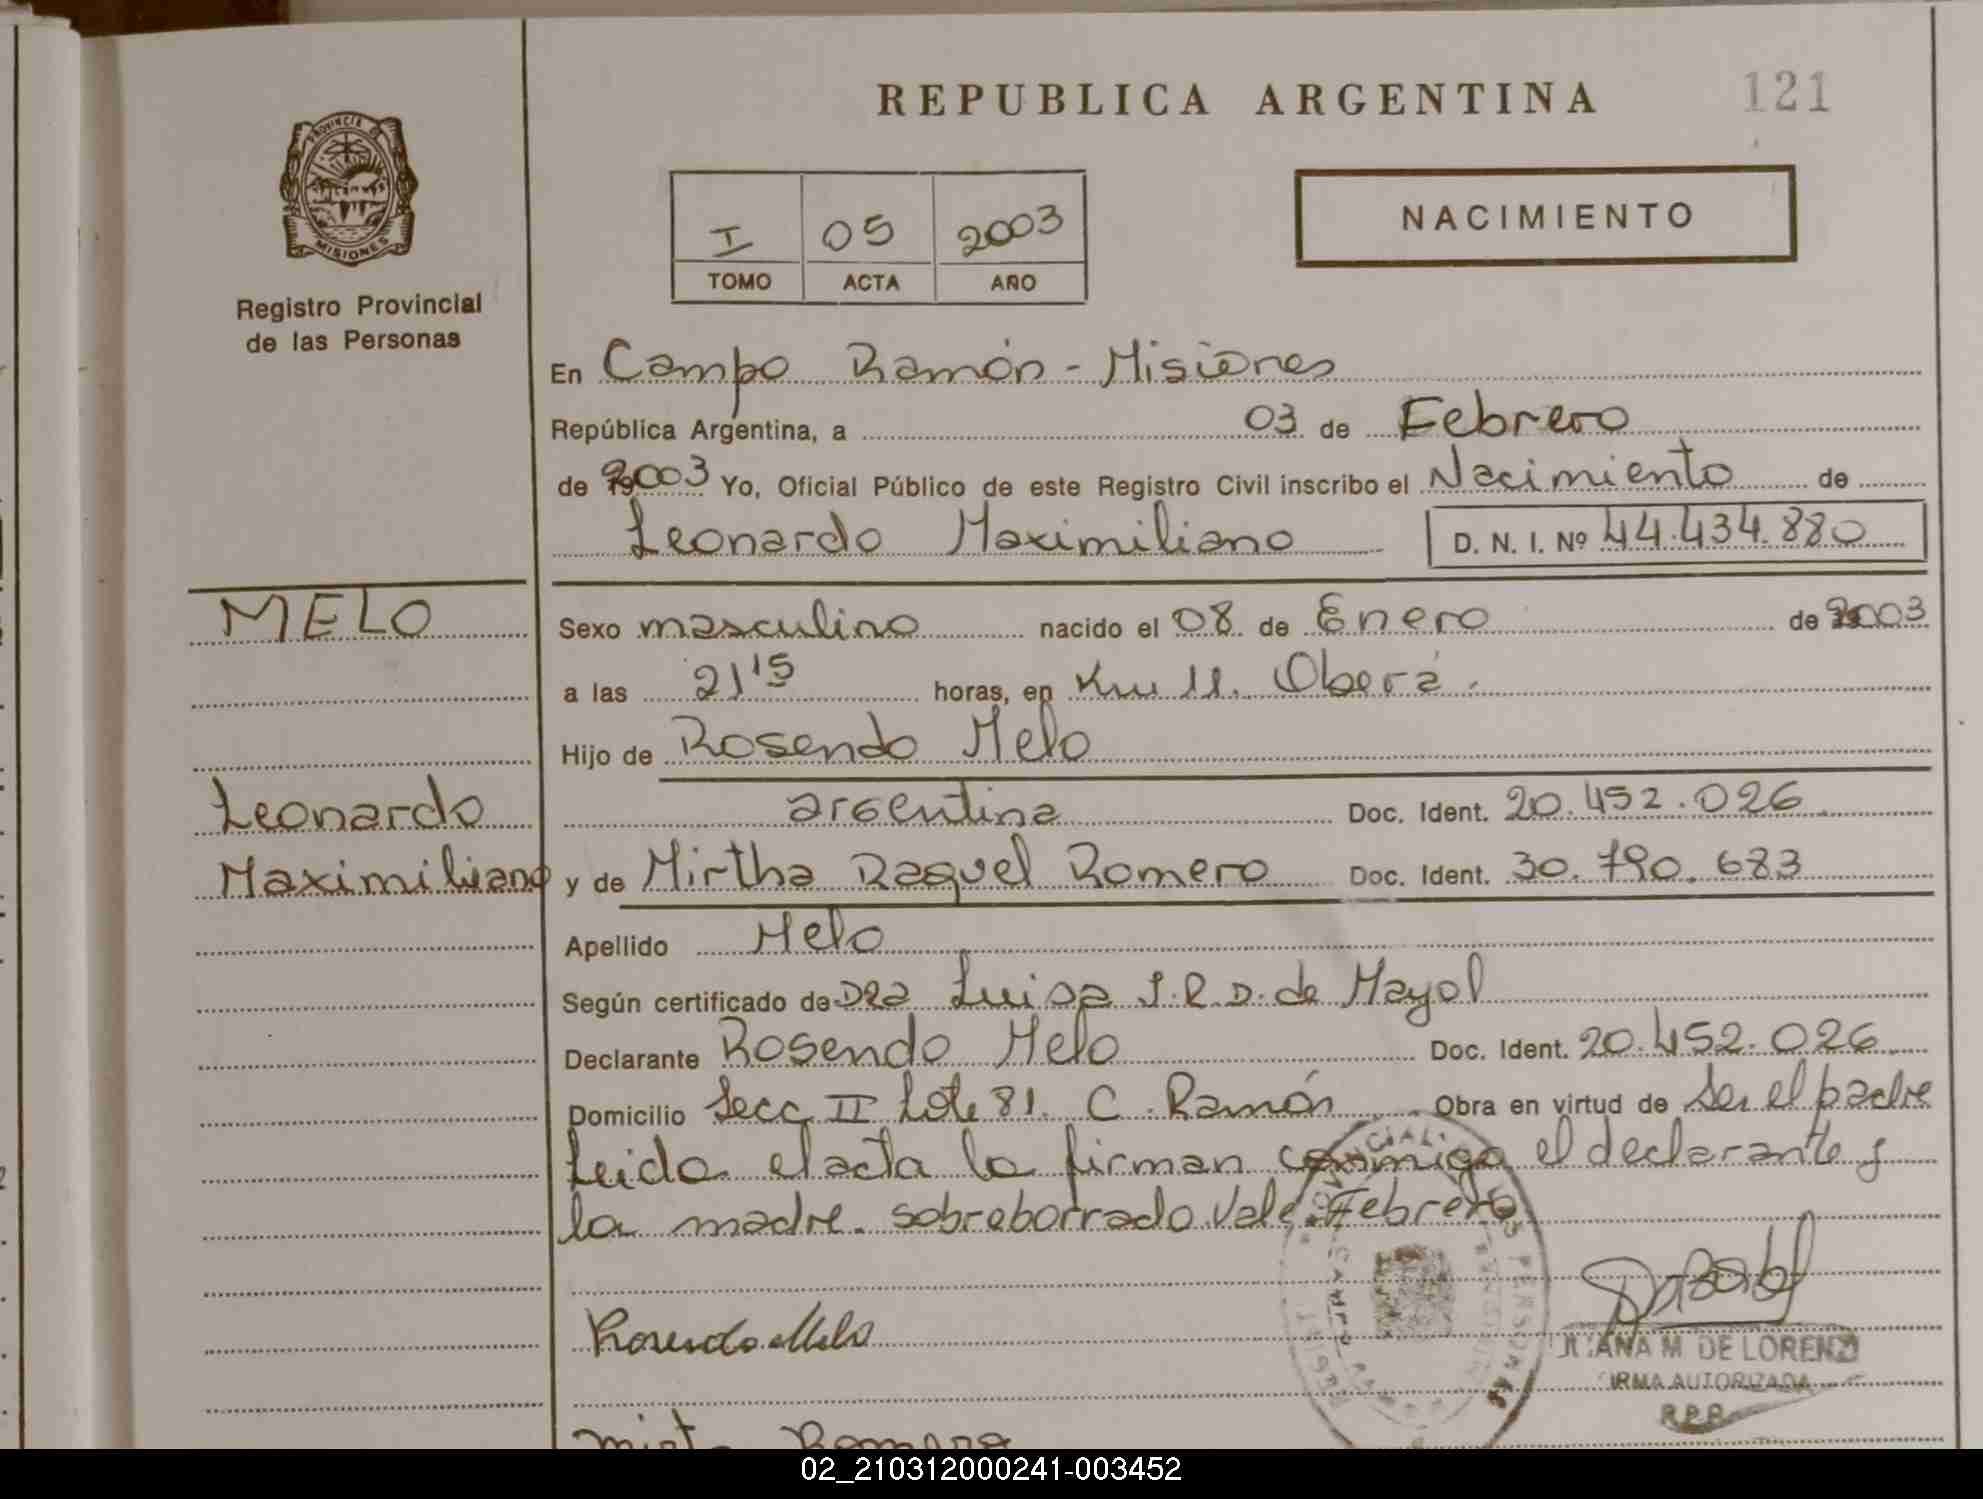 REPUBLICA ARGENTINA
121
PROVINCIA DE
MISIONES
Registro Provincial
de las Personas
I 05 2003
TOMO ACTA AÑO
NACIMIENTO
En Campo Ramón - Misiones
República Argentina, a 03 de Febrero
de 2003 Yo, Oficial Público de este Registro Civil inscribo el Nacimiento de
Leonardo Maximiliano D. N. I. Nº 44.434.880
MELO
Sexo masculino nacido el 08 de Enero de 2003
a las 21 15 horas, en Km 11. Oberá.
Hijo de Rosendo Melo
Leonardo
argentina Doc. Ident. 20.452.026
Maximiliano
y de Mirtha Raquel Romero Doc. Ident. 30.790.683
Apellido Melo
Según certificado de Dra Luisa I.R.D. de Mayol
Declarante Rosendo Melo Doc. Ident. 20.452.026
Domicilio Secc II Lote 81. C. Ramón Obra en virtud de Ser el padre
Leida el acta la firman conmigo el declarante y
la madre. sobreborrado. Vale: Febrero
Rosendo Melo
JUANA M DE LORENZI
FIRMA AUTORIZADA
R.P.P.
Romero
02_210312000241-003452